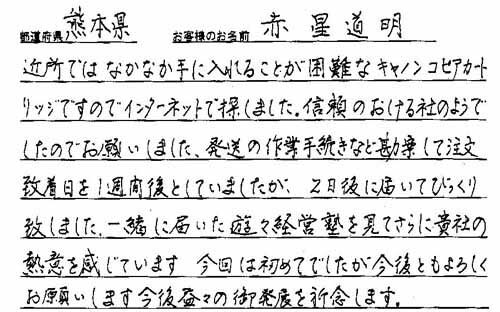 都道府県/熊本県 お客様のお名前 赤星道明
近所ではなかなか手に入れることが困難なキャノンコピアカート
リッジですのでインターネットで探しました。信頼のおける社のようで
したのでお願いしました、発送の作業手続きなど勘案して注文
致着日を1週間後としていましたが、2日後に届いてびっくり
致しました、一緒に届いた遊々経営塾を見てさらに貴社の
熱意を感じています 今回は初めてでしたが今後ともよろしく
お願いします今後益々の御発展を祈念します。